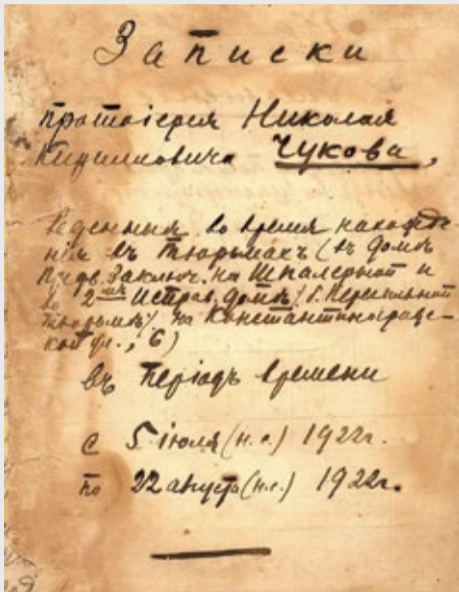 Записки
протоіерея Николая
Кирилловича Чукова,
веденныя во время нахожде-
нія въ тюрьмахъ (въ домѣ
Предв. Заключ. на Шпалерной и
во 2мъ Исправ. домѣ / б. Пересыльной
тюрьмѣ / на Константиноградс-
кой ул., 6)
въ періодъ времени
с 5 іюля (н.с.) 1922г.
по 22 августа (н.с.) 1922г.